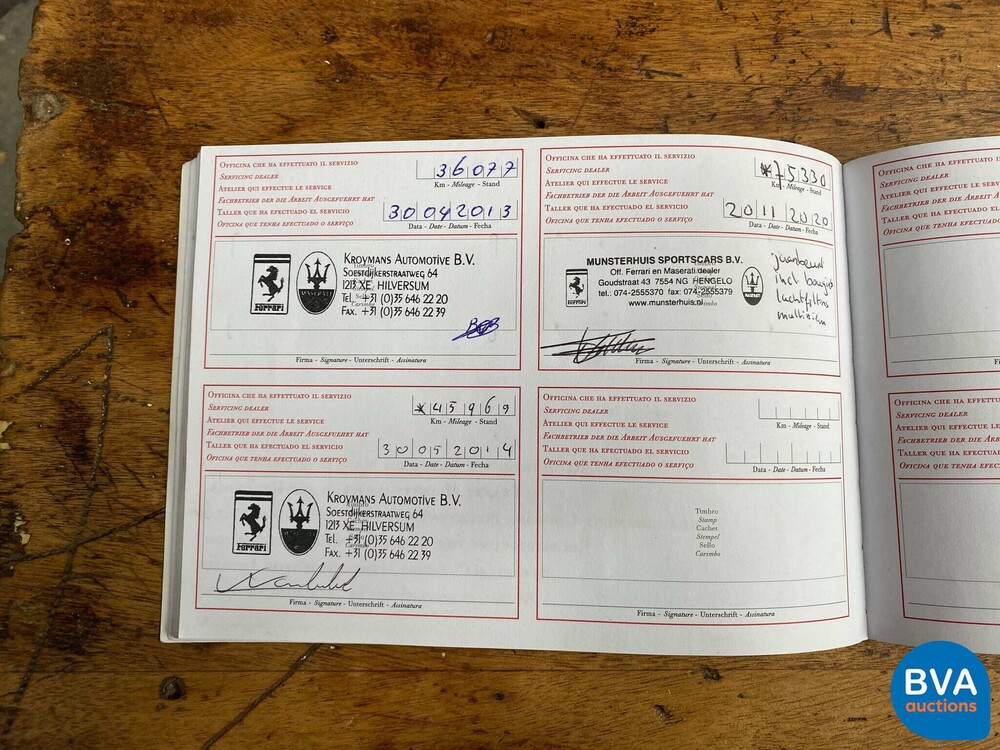 Officina che ha effettuato il servizio
Servicing dealer
Atelier qui effectue le service
Fachbetrieb der die Arbeit Ausgefuehrt hat
Taller que ha efectuado el servicio
Oficina que tenha efectuado o serviço
36077
Km - Mileage - Stand
30 04 2013
Data - Date - Datum - Fecha
Ferrari
Kroymans Automotive B.V.
Soestdijkerstraatweg 64
1213 XE HILVERSUM
Tel. +31 (0)35 646 22 20
Fax. +31 (0)35 646 22 39
Firma - Signature - Unterschrift - Assinatura
Officina che ha effettuato il servizio
Servicing dealer
Atelier qui effectue le service
Fachbetrieb der die Arbeit Ausgefuehrt hat
Taller que ha efectuado el servicio
Oficina que tenha efectuado o serviço
*45969
Km - Mileage - Stand
30 05 2014
Data - Date - Datum - Fecha
Ferrari
Kroymans Automotive B.V.
Soestdijkerstraatweg 64
1213 XE HILVERSUM
Tel. +31 (0)35 646 22 20
Fax. +31 (0)35 646 22 39
Firma - Signature - Unterschrift - Assinatura
Officina che ha effettuato il servizio
Servicing dealer
Atelier qui effectue le service
Fachbetrieb der die Arbeit Ausgefuehrt hat
Taller que ha efectuado el servicio
Oficina que tenha efectuado o serviço
*75330
Km - Mileage - Stand
20 11 2020
Data - Date - Datum - Fecha
MUNSTERHUIS SPORTSCARS B.V.
Off. Ferrari en Maserati dealer
Goudstraat 43 7554 NG HENGELO
tel.: 074-2555370 fax: 074-2555379
www.munsterhuis.nl
Ferrari
MASERATI
jaarbeurt
incl bougies
luchtfilters
multiriem
Firma - Signature - Unterschrift - Assinatura
Officina che ha effettuato il servizio
Servicing dealer
Atelier qui effectue le service
Fachbetrieb der die Arbeit Ausgefuehrt hat
Taller que ha efectuado el servicio
Oficina que tenha efectuado o serviço
Km - Mileage - Stand
Data - Date - Datum - Fecha
Timbro
Stamp
Cachet
Stempel
Sello
Carimbo
Firma - Signature - Unterschrift - Assinatura
Officina che ha effettuato il
Servicing dealer
Atelier qui effectue le
Fachbetrieb der die Arbeit
Taller que ha efectuado
Oficina que tenha efectuado
Officina che ha effettuato
Servicing dealer
Atelier qui effectue le
Fachbetrieb der die Arbeit
Taller que ha efectuado
Oficina que tenha efectuado
BVA
auctions